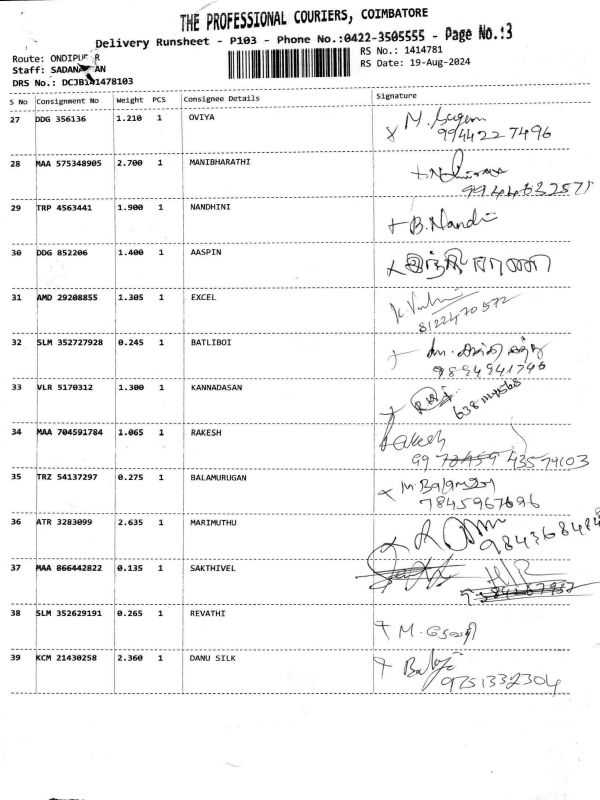 THE PROFESSIONAL COURIERS, COIMBATORE
Delivery Runsheet - P103 - Phone No.:0422-3505555 - Page No.:3
Route: ONDIPU R
RS No.: 1414781
Staff: SADANA AN
RS Date: 19-Aug-2024
DRS No.: DCJB141478103
S No Consignment No Weight PCS Consignee Details Signature
27 DDG 356136 1.210 1 OVIYA
9944227496
28 MAA 575348905 2.700 1 MANIBHARATHI
29 TRP 4563441 1.900 1 NANDHINI B. Nandi
30 DDG 852206 1.400 1 AASPIN
31 AMD 29208855 1.305 1 EXCEL
8122470572
32 SLM 352727928 0.245 1 BATLIBOI
9894941796
33 VLR 5170312 1.300 1 KANNADASAN
34 MAA 704591784 1.065 1 RAKESH Rakesh
35 TRZ 54137297 0.275 1 BALAMURUGAN
7845967696
36 ATR 3283099 2.635 1 MARIMUTHU
37 MAA 866442822 0.135 1 SAKTHIVEL
38 SLM 352629191 0.265 1 REVATHI M. ரேவதி
39 KCM 21430258 2.360 1 DANU SILK Balaji
9751332304